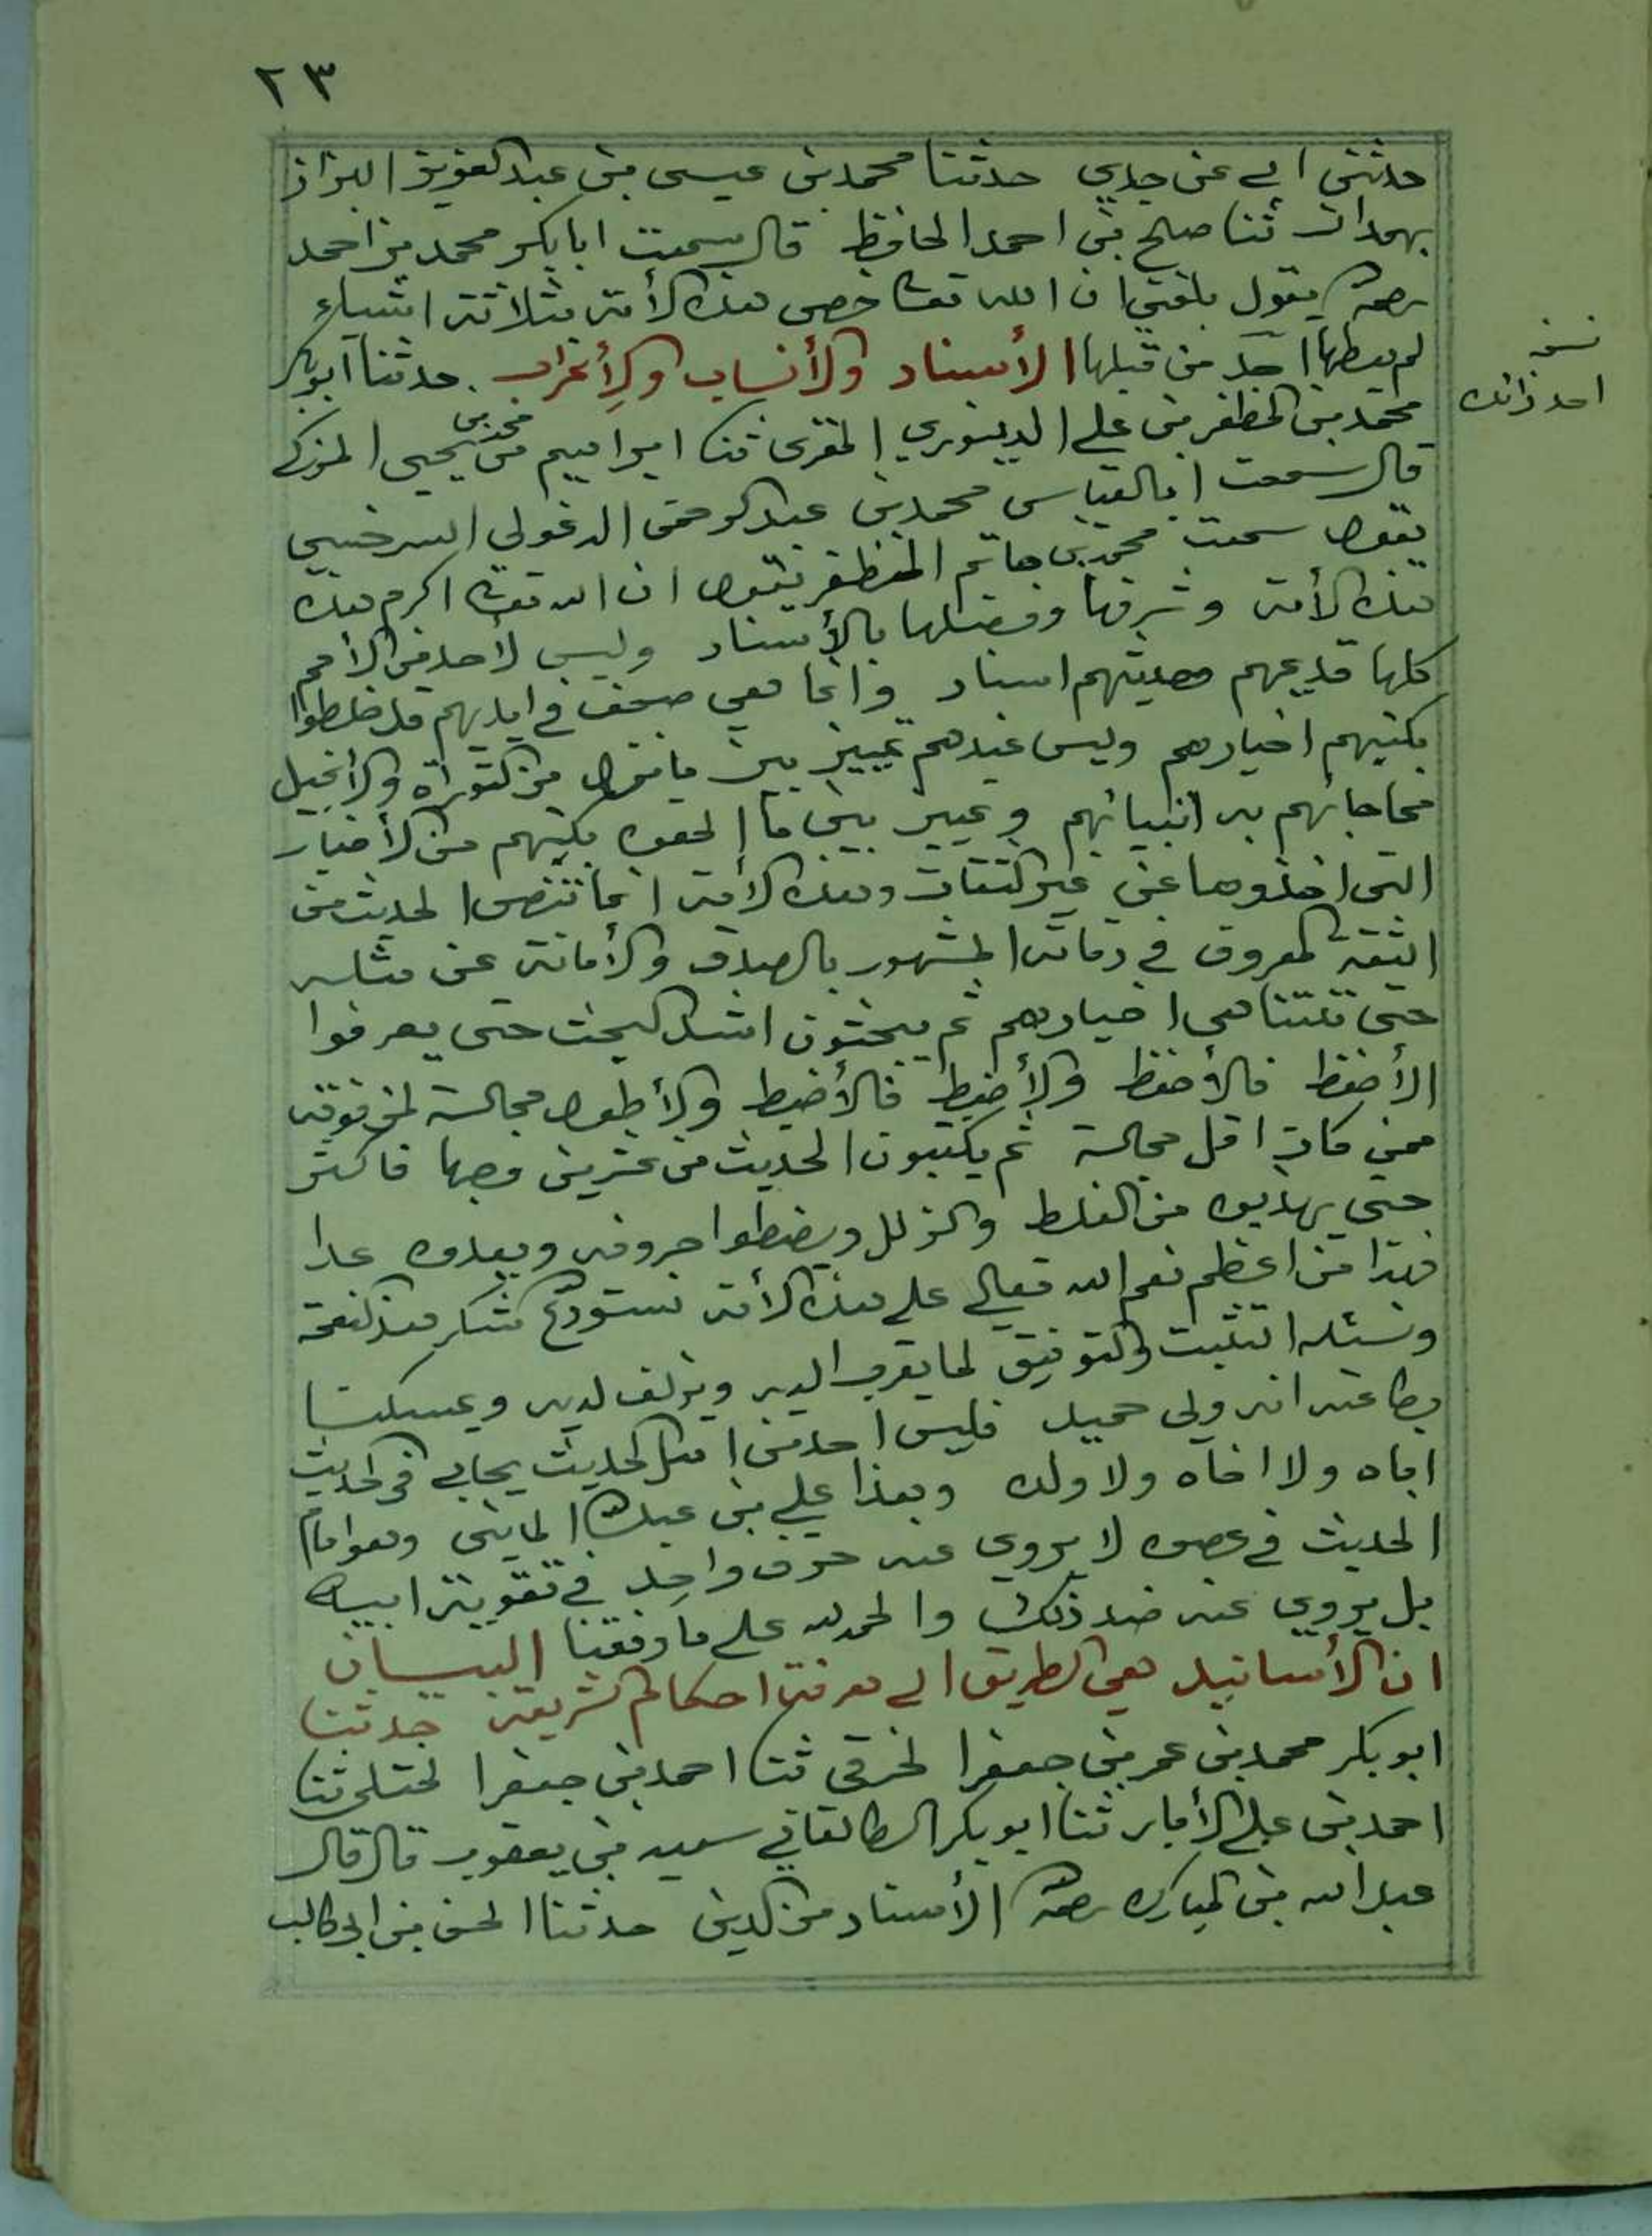 ٢٣
حدثني ابي عن جدي حدثنا محمد بن عيسى بن عبد العزيز البزاز
بهمدان ثنا صالح بن احمد الحافظ قال سمعت ابا بكر محمد بن احمد
يقول بلغني ان الله خص هذه الأمة بثلاثة اشياء
لم يعطها احد من قبلها الأسناد والأنساب والإعراب . حدثنا ابو بكر
نسخه
احد زائده
محمد بن المظفر بن علي الدينوري المقرى ثنا ابراهيم بن محمد بن يحيى المزكي
قال سمعت ابا العباس محمد بن عبد الرحمن الدغولي السرخسي
يقول سمعت محمد بن حاتم المظفر يقول ان الله اكرم هذه
هذه الأمة وشرفها وفضلها بالأسناد وليس لأحد من الأمم
كلها قديمهم وحديثهم اسناد وانما هي صحف في ايديهم قد خلطوا
بكتبهم اخبارهم وليس عندهم تمييز بين ما نزل من التوراة والأنجيل
مما جائهم به انبيائهم وتمييز بين ما الحقوه بكتبهم من الأخبار
التي اخذوها عن غير الثقات وهذه الأمة انما تنص الحديث من
الثقة المعروف في زمانه المشهور بالصدق والأمانة عن مثله
حتى تتناهى اخبارهم ثم يبحثون اشد البحث حتى يعرفوا
الأحفظ فالأحفظ والأضبط فالأضبط والأطول مجالسة لمن فوقه
ممن كان اقل مجالسة ثم يكتبون الحديث من عشرين وجها فاكثر
حتى يهذبوه من الغلط والزلل ويضبطوا حروفه ويعدوه عدا
فهذا من اعظم نعم الله تعالى على هذه الأمة نستودع شكر هذه النعمة
ونسئله التثبت والتوفيق لما يقرب اليه ويزلف لديه ويمسكنا
بطاعته انه ولي حميد فليس احد من اهل الحديث يحابي في الحديث
اباه ولا اخاه ولا ولده وهذا علي بن عبد الله المديني وهو امام
الحديث في عصره لا يروى عنه حرف واحد في تقوية ابيه
بل يروى عنه ضد ذلك والحمد لله على ما وفقنا البيان
ان الأسانيد هي الطريق الى معرفة احكام الشريعة حدثنا
ابو بكر محمد بن عمر بن جعفر الخرقي ثنا احمد بن جعفر الختلي ثنا
احمد بن علي الأبار ثنا ابو بكر الطالقاني سعيد بن يعقوب قال قال
عبد الله بن المبارك الأسناد من الدين حدثنا الحسن بن ابي طالب